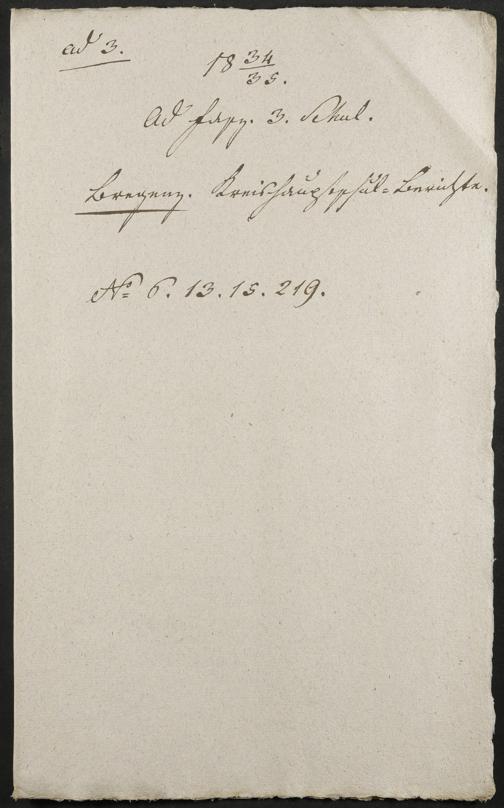 ad 3.
18 34/35.
Ad Fasz. 3. Schul.
Bregenz. Kreishauptschul=Berichte.
No 6. 13. 15. 219.